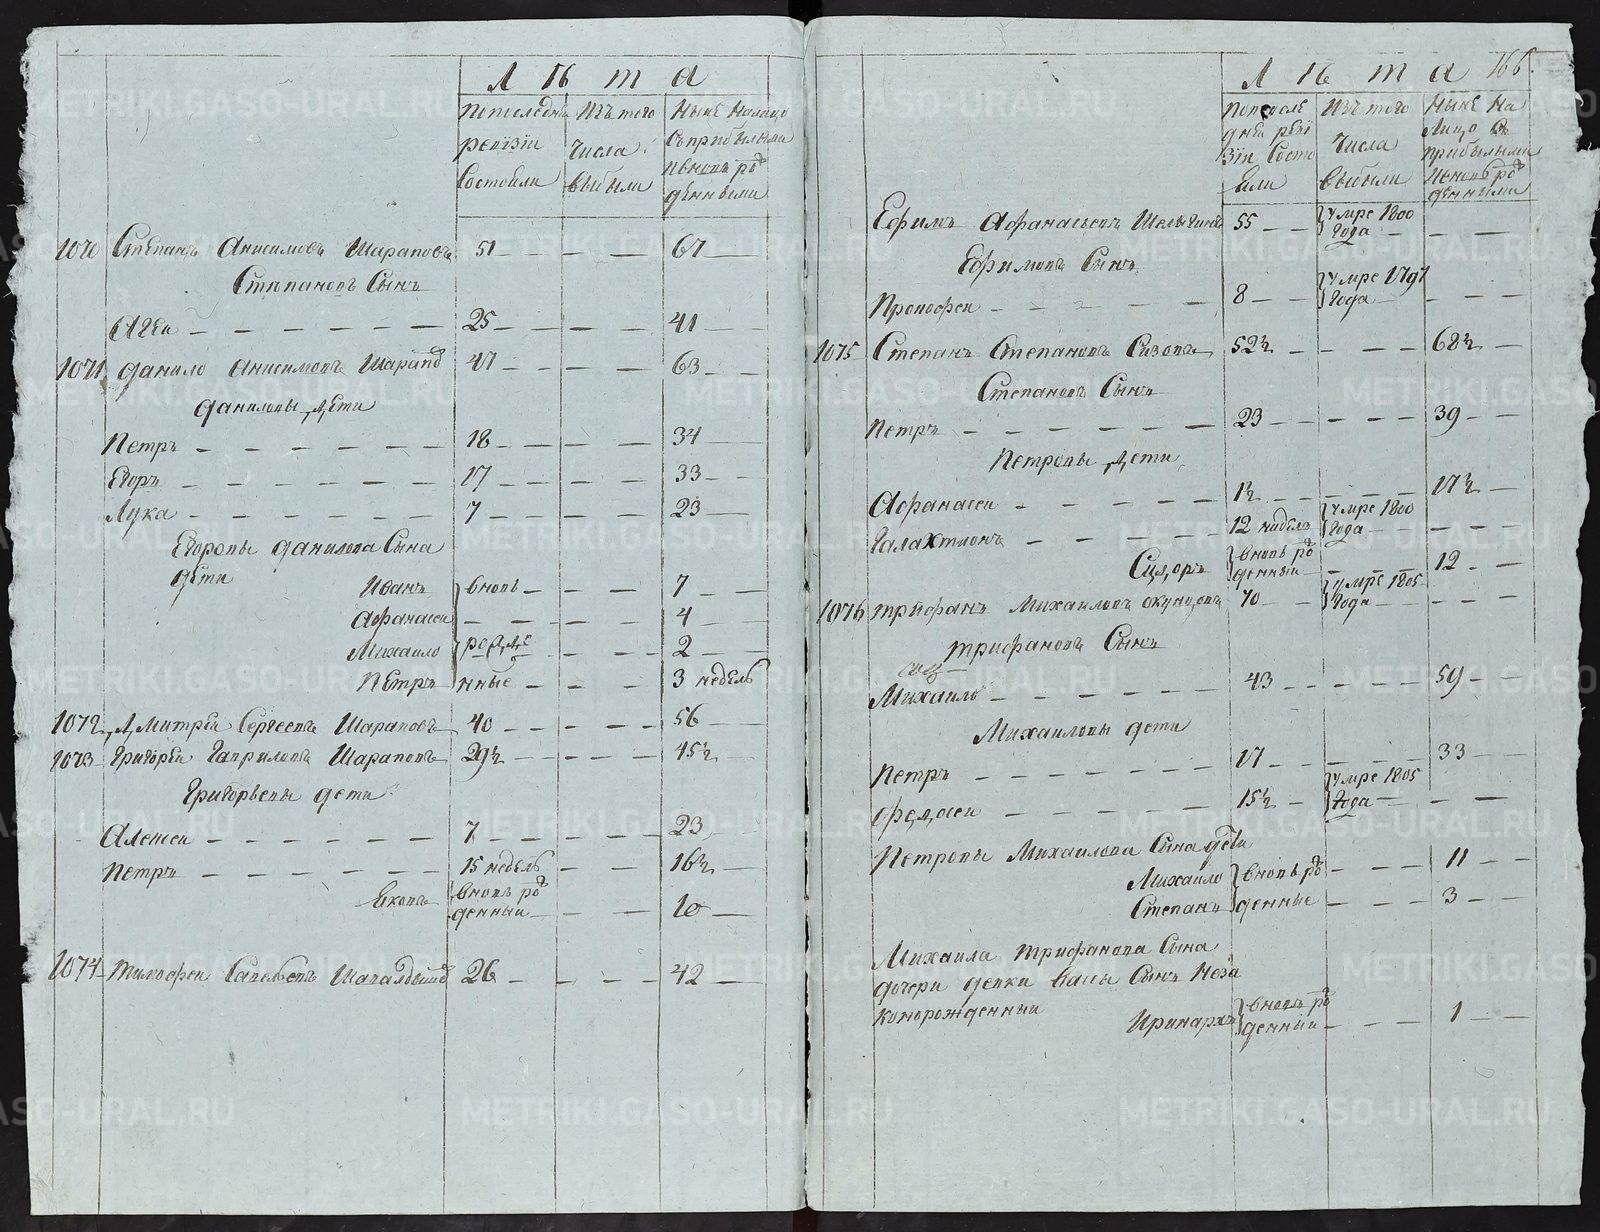 Лѣта
Попоследнѣ ревизии состояли
Изъ того числа выбыли
Ныне налицо съ прибылыми и вновь рожденными
1070 Степанъ Анисимовъ Шараповъ 51 — — — 67 —
Степановъ Сынъ
Агеи — — — — — — 25 — — — 41 —
1071 Данило Анисимовъ Шарапов 47 — — — 63 —
Даниловы дети
Петръ — — — — — — 18 — — — 34 —
Егоръ — — — — — — 17 — — — 33 —
Лука — — — — — — 7 — — — 23 —
Егоровы Данилова Сына
дети
Иванъ вновь — — 7 —
Афанасеи — — — 4 —
Михаило рожде — — — 2 —
Петръ нные — — — 3 недель
1072 Дмитреи Сергеевъ Шараповъ 40 — — — 56 —
1073 Григореи Гавриловъ Шараповъ 29½ — — — 45½ —
Григорьевы дети
Алексеи — — — — — — 7 — — — 23 —
Петръ — — — — — — 15 недель — — 16½ —
Яковъ вновь рож
денныи — — — 10 —
1074 Тимофеи Савельевъ 26 — — — 42 —
Лѣта 166.
Попосле дней ревизіи состояли
Изъ того числа выбыли
Ныне на лицо съ прибылыми и вновь рожденными
Ефимъ Афанасьевъ 55 — — умре 1800
года — — —
Ефимовъ Сынъ
Прокофеи — — — — 8 — — умре 1797
года — — —
1075 Степанъ Степановъ Сизовъ 52½ — — — 68½ —
Степановъ Сынъ
Петръ — — — — — — 23 — — — 39 — —
Петровы дети
Афанасеи — — — — — 1½ — — — 17½ —
Галахтионъ — — — — 12 недель умре 1800
года — — —
Сидоръ вновь рож
денныи — — 12 — —
1076 Трифанъ Михаиловъ Окунцовъ 70 — умре 1805
года — — —
Трифановъ Сынъ
Михаило — — — — — 43 — — — — 59 — —
Михаиловы дети
Петръ — — — — — — 17 — — — — 33 — —
Федосеи — — — — — 15½ — умре 1805
года — — —
Петровы Михаилова Сына дети
Михаило вновь рож — — — 11 — —
Степанъ денные — — — 3 — —
Михаила Трифанова Сына
дочери девки Васы Сынъ Неза
конорожденныи
Иринархъ вновь рож
денныи — — — 1 — —
METRIKI.GASO-URAL.RU